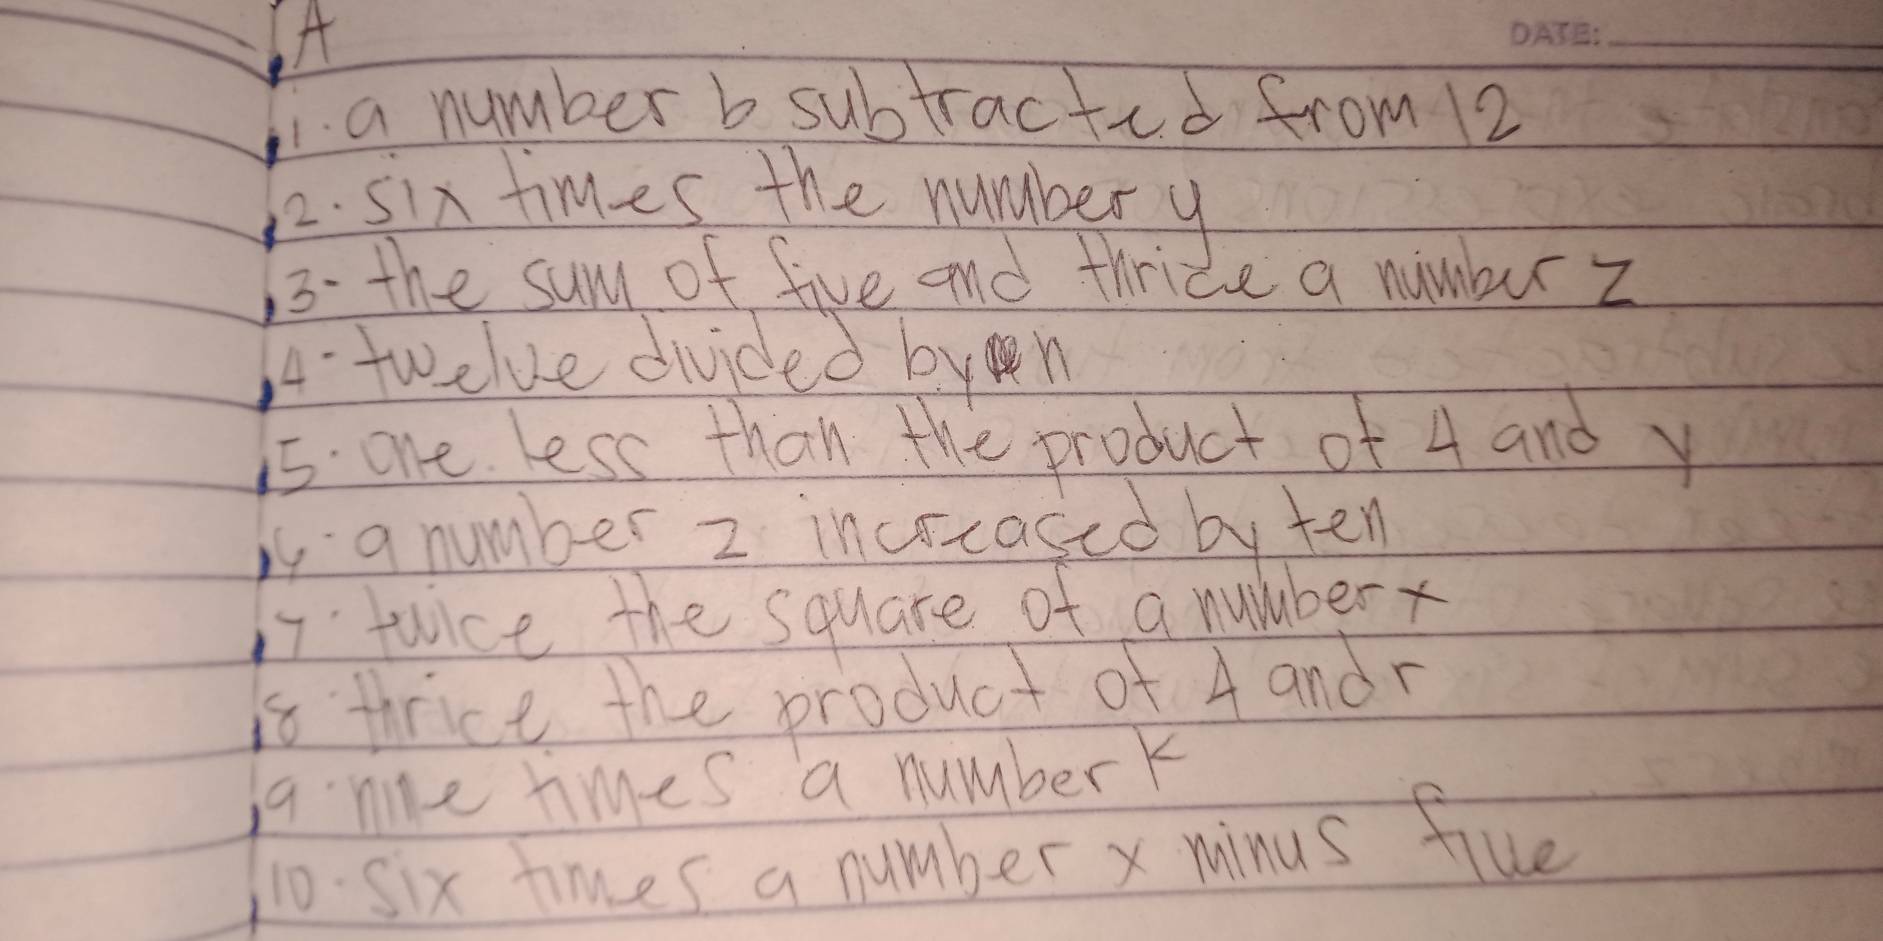 A
DATE:
1. a number b subtracted from 12
2. six times the number y
3. the sum of five and thrice a number z
4. twelve divided by n
5. one less than the product of 4 and y
6. a number z increased by ten
7. twice the square of a number x
8 thrice the product of 4 and r
9. nine times a number k
10. six times a number x minus five